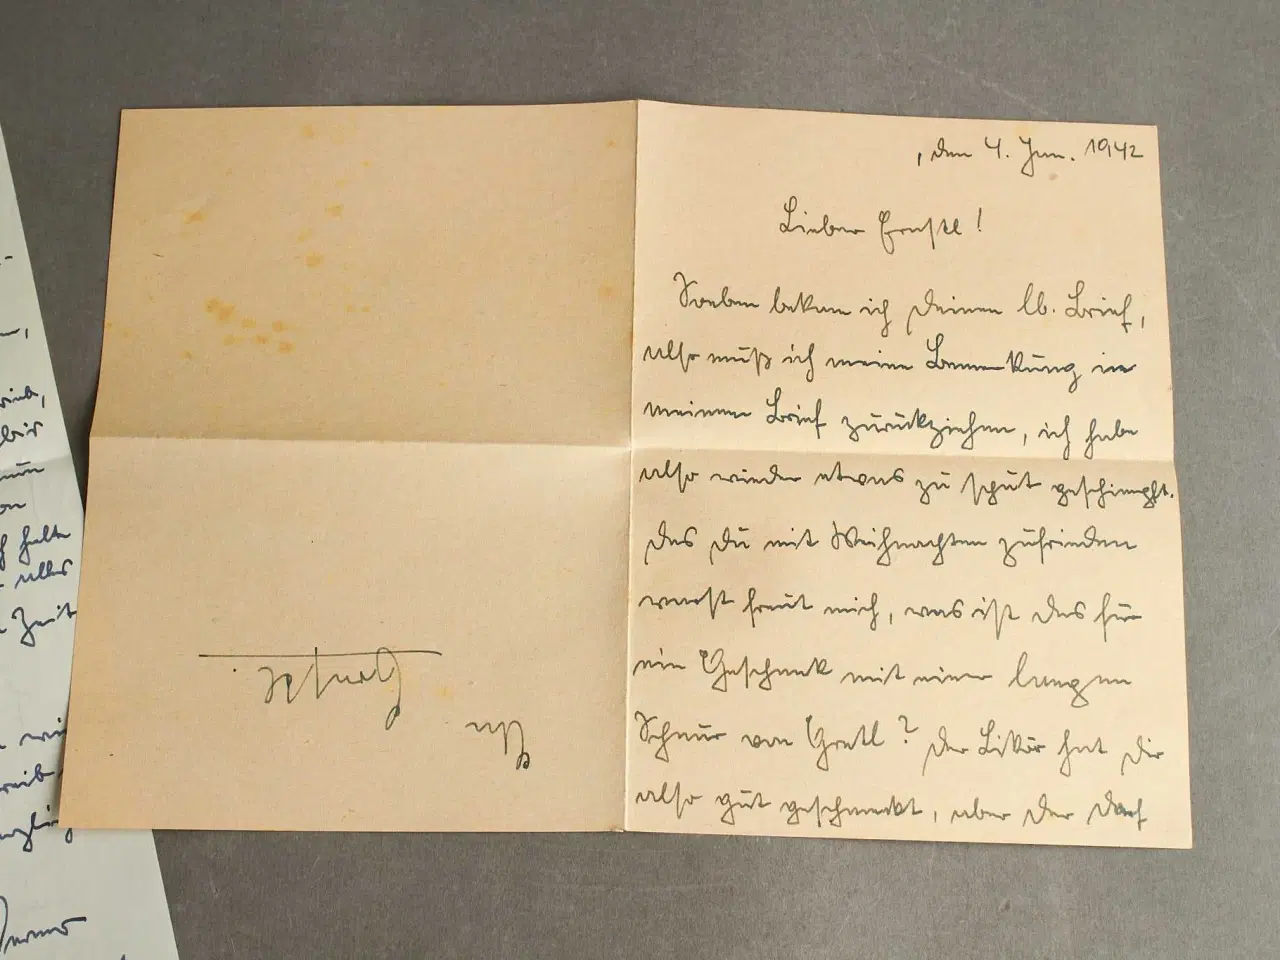 , den 4. Jan. 1942
Lieber Ernstl!
Soeben bekam ich Deinen lb. Brief,
also muß ich meine Bemerkung im
meinem Brief zurückziehen, ich habe
also wieder etwas zu spät geschimpft.
Das Du mit Weihnachten zufrieden
warst freut mich, was ist das für
ein Geschenk mit einer langen
Schnur von Gretl? Der Likör hat Dir
also gut geschmeckt, aber der darf
An
Ernstl.
halte
alles
Zeit